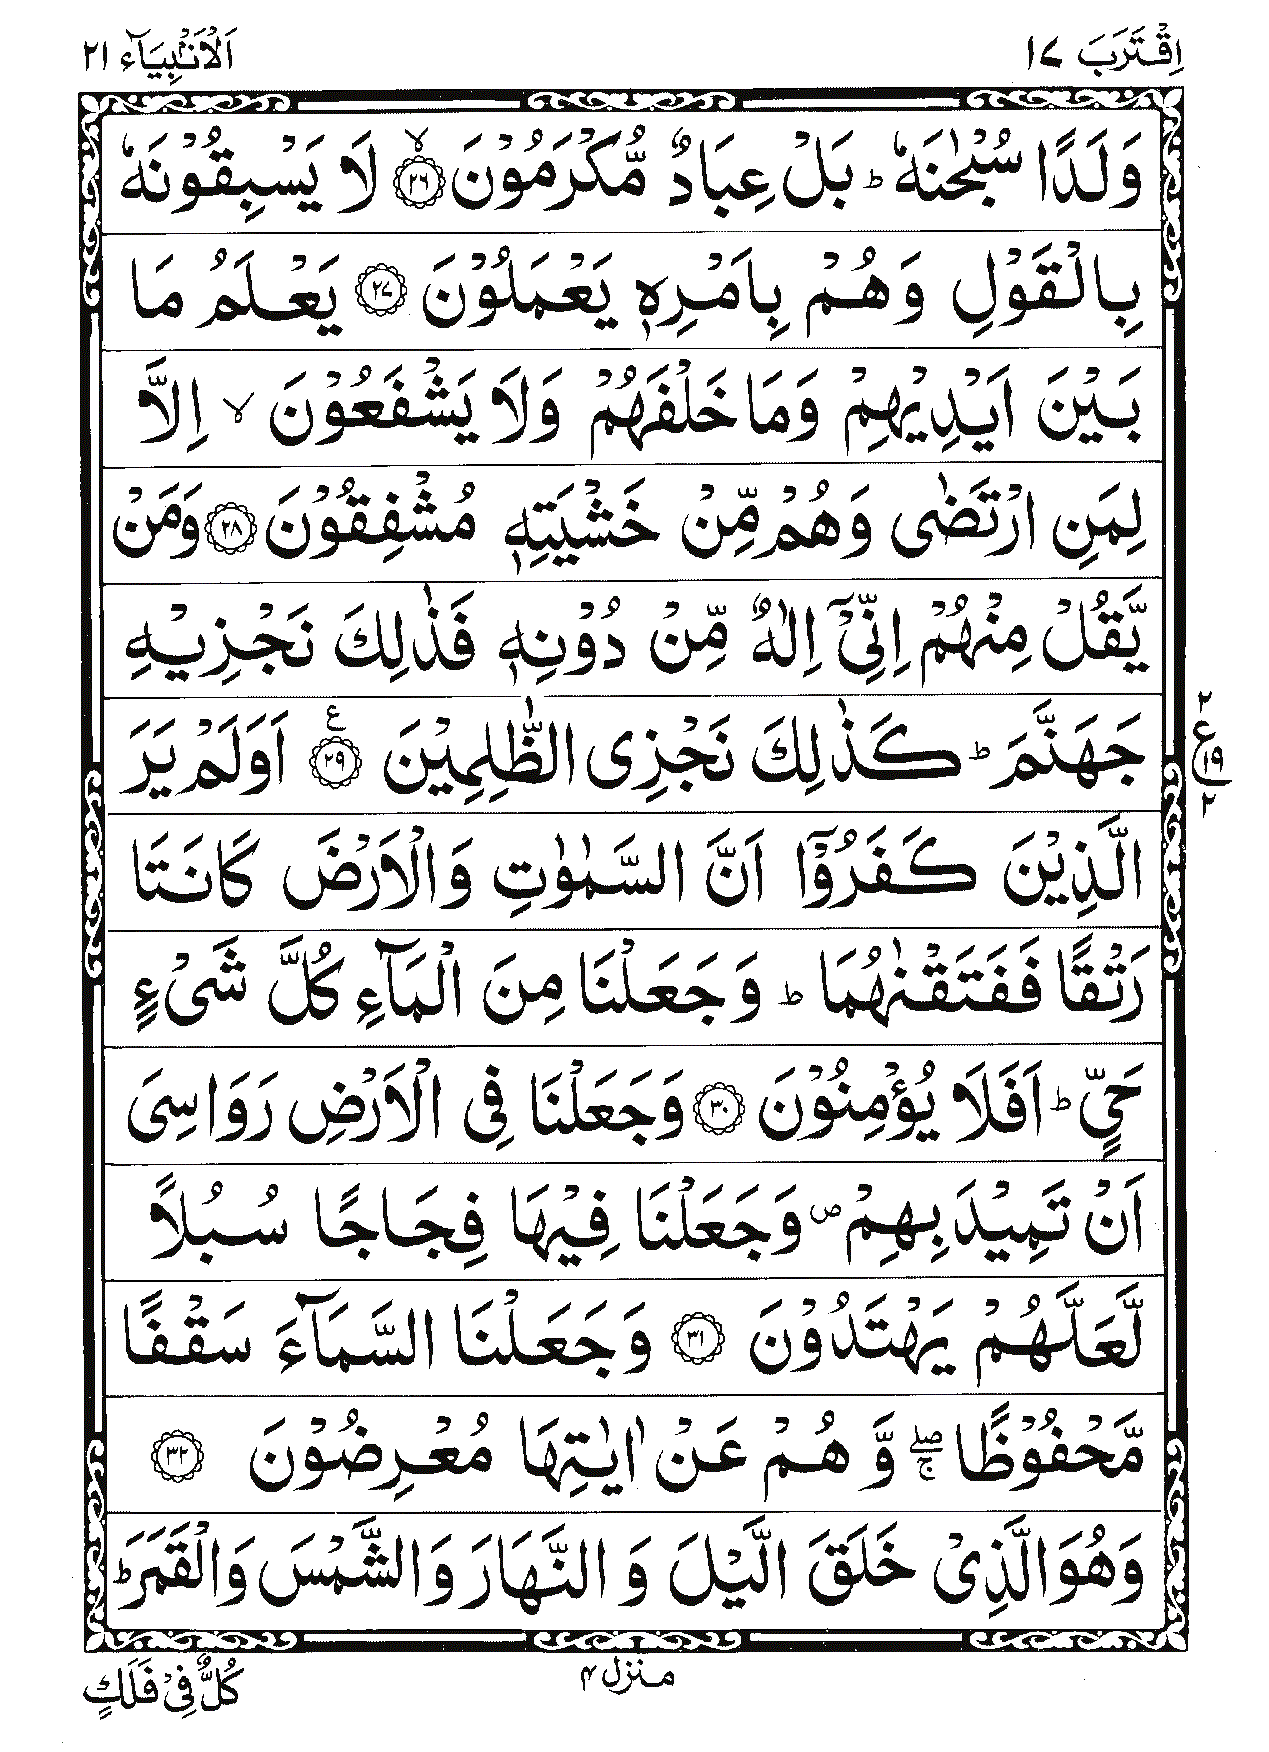 اِقْتَرَبَ ١٧
اَلْاَنْۢبِيَآء ٢١
وَلَدًا سُبْحٰنَهٗ ؕ بَلْ عِبَادٌ مُّكْرَمُوْنَ ۙ‏﴿۲۶﴾ لَا يَسْبِقُوْنَهٗ
بِالْقَوْلِ وَهُمْ بِاَمْرِهٖ يَعْمَلُوْنَ ﴿۲۷﴾ يَعْلَمُ مَا
بَيْنَ اَيْدِيْهِمْ وَمَا خَلْفَهُمْ وَلَا يَشْفَعُوْنَ ۙ اِلَّا
لِمَنِ ارْتَضٰى وَهُمْ مِّنْ خَشْيَتِهٖ مُشْفِقُوْنَ ﴿۲۸﴾ وَمَنْ
يَّقُلْ مِنْهُمْ اِنِّىْۤ اِلٰهٌ مِّنْ دُوْنِهٖ فَذٰلِكَ نَجْزِيْهِ
جَهَنَّمَ ؕ كَذٰلِكَ نَجْزِى الظّٰلِمِيْنَ ﴿۲۹﴾ ع اَوَلَمْ يَرَ
٢ ع ١٩ ٢
الَّذِيْنَ كَفَرُوْۤا اَنَّ السَّمٰوٰتِ وَالْاَرْضَ كَانَتَا
رَتْقًا فَفَتَقْنٰهُمَا ؕ وَجَعَلْنَا مِنَ الْمَآءِ كُلَّ شَىْءٍ
حَىٍّ ؕ اَفَلَا يُؤْمِنُوْنَ ﴿۳۰﴾ وَجَعَلْنَا فِى الْاَرْضِ رَوَاسِىَ
اَنْ تَمِيْدَ بِهِمْ ص وَجَعَلْنَا فِيْهَا فِجَاجًا سُبُلًا
لَّعَلَّهُمْ يَهْتَدُوْنَ ﴿۳۱﴾ وَجَعَلْنَا السَّمَآءَ سَقْفًا
مَّحْفُوْظًا ۖۚ وَّهُمْ عَنْ اٰيٰتِهَا مُعْرِضُوْنَ ﴿۳۲﴾
وَهُوَ الَّذِىْ خَلَقَ الَّيْلَ وَالنَّهَارَ وَالشَّمْسَ وَالْقَمَرَ ؕ
منزل ۴
كُلٌّ فِىْ فَلَكٍ